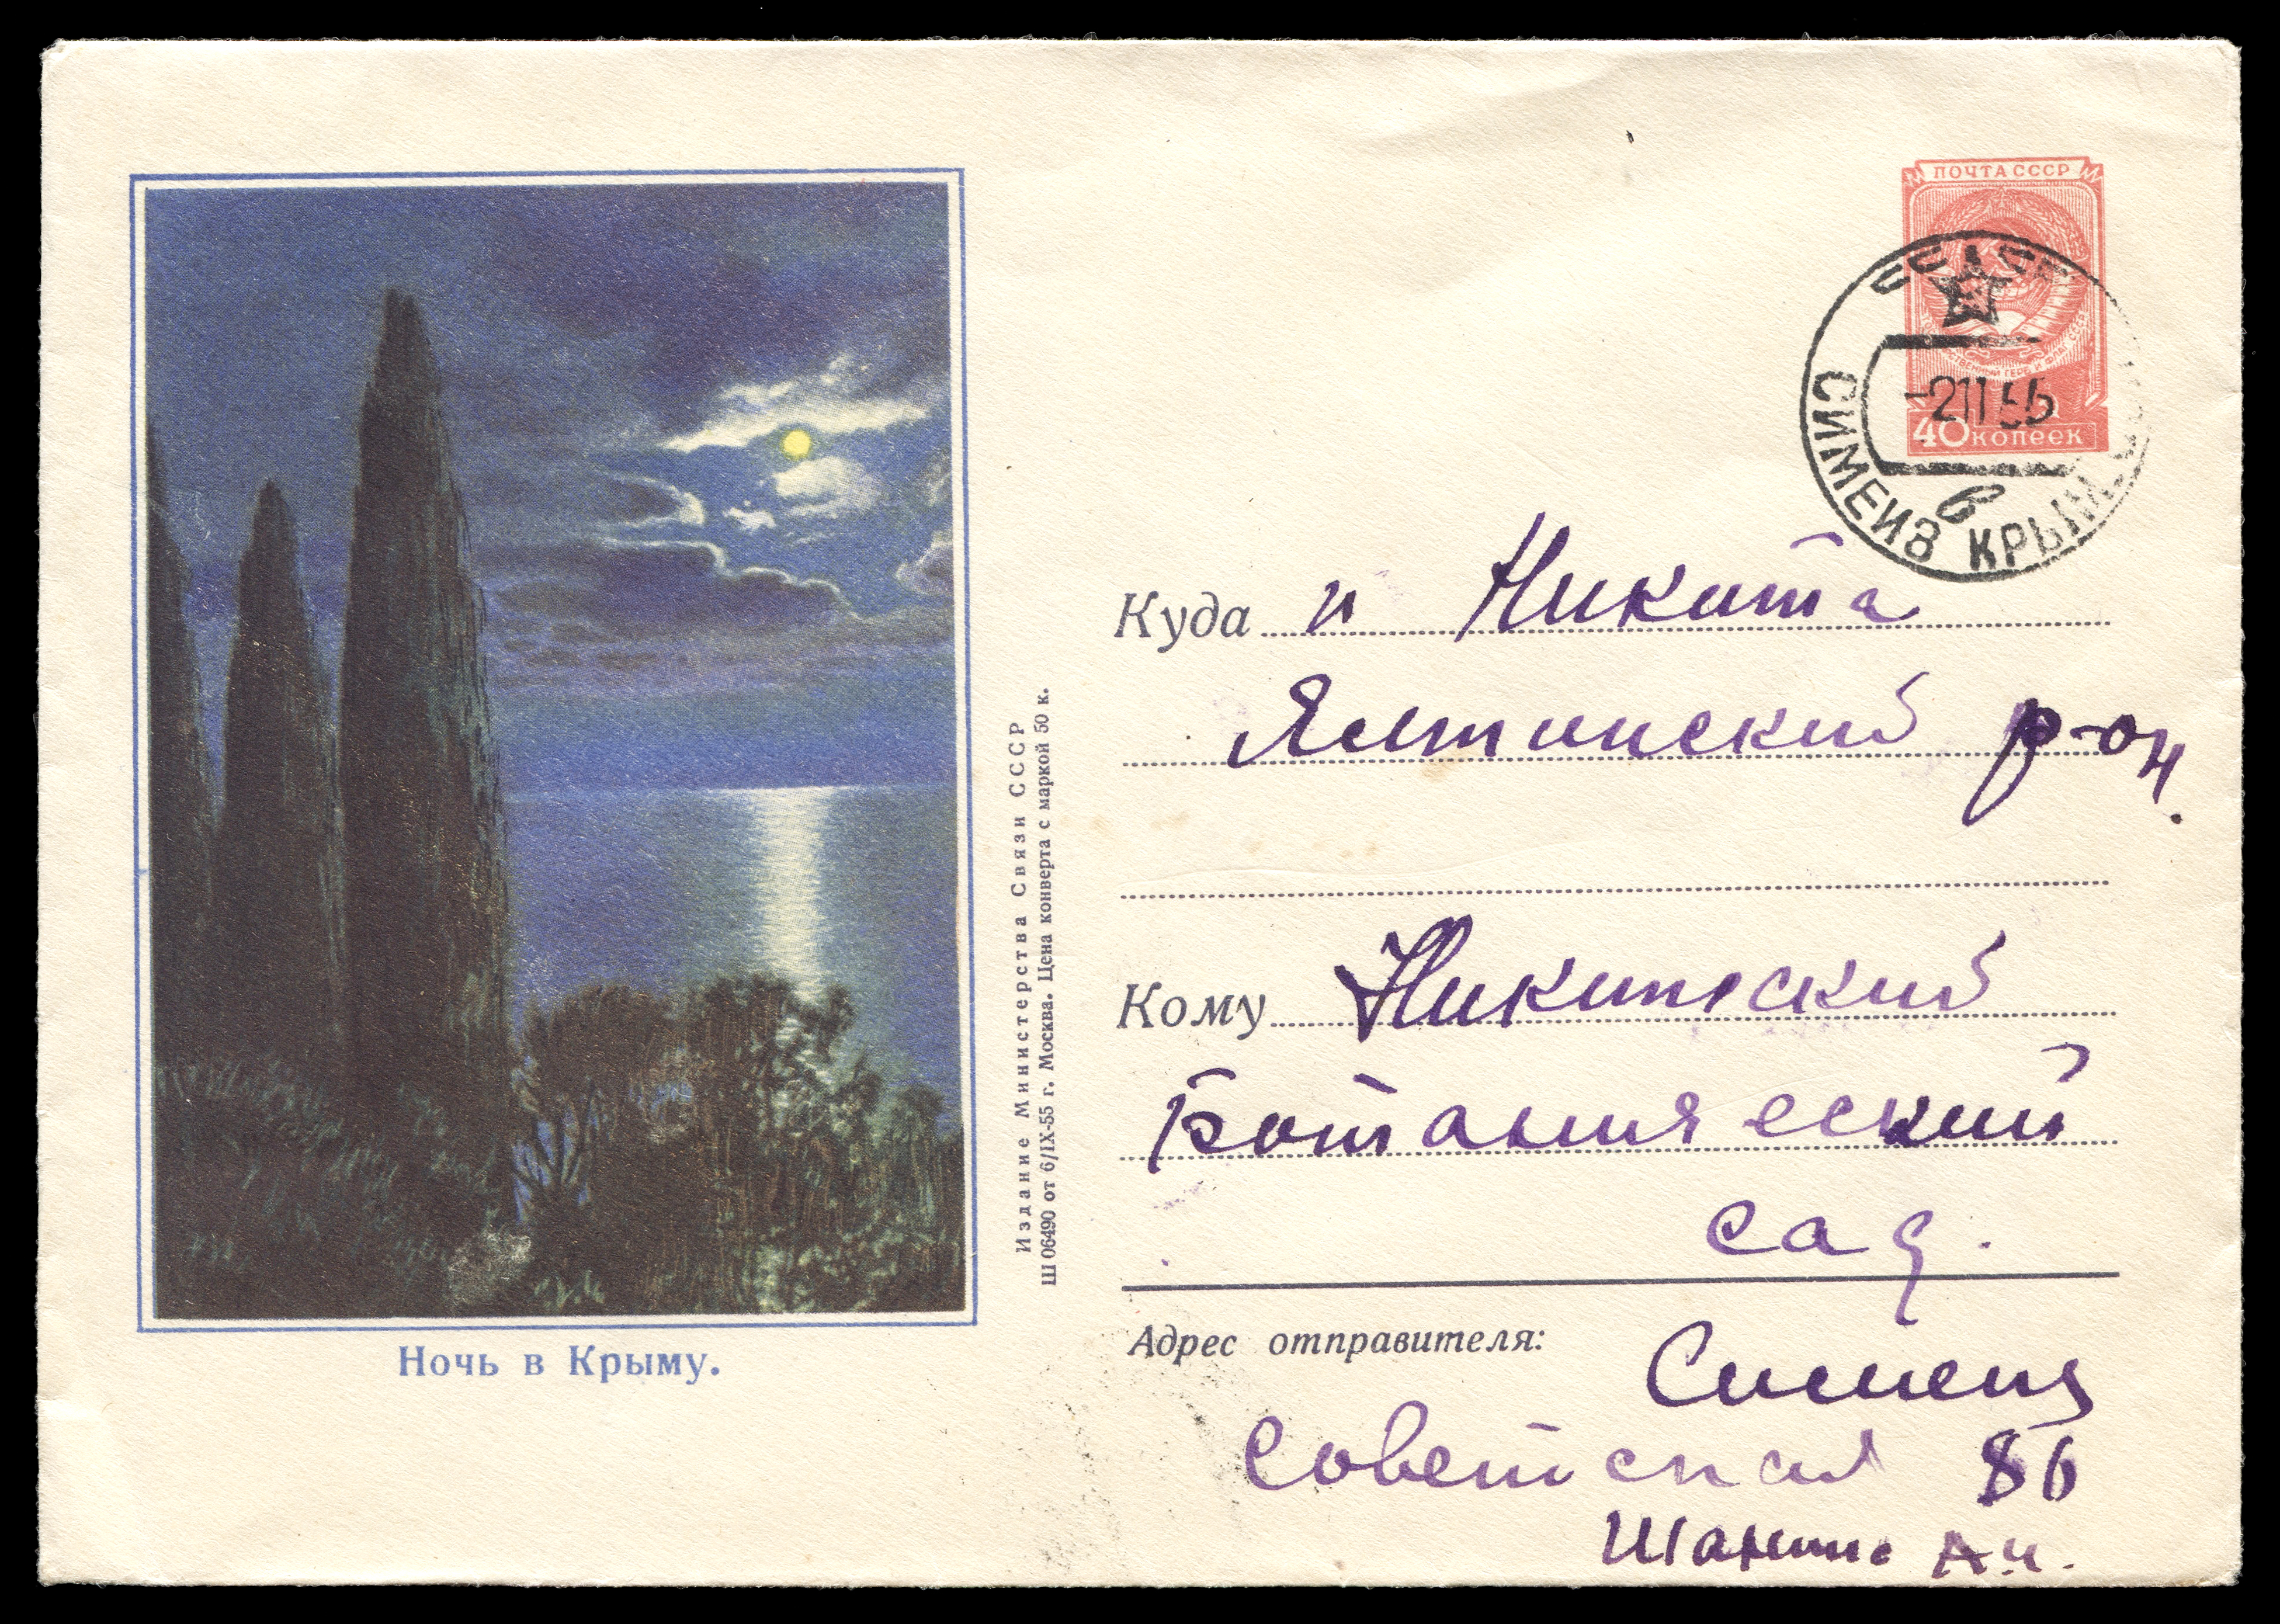 ПОЧТА СССР
40 КОПЕЕК
СИМЕИЗ КРЫМ
в
-2 11 56
Куда п Никита
Ялтинский р-он.
Кому Никитский
Ботанический
сад.
Адрес отправителя:
Симеиз
Советская 86
А.И.
Издание Министерства Связи СССР
Ш 06490 от 6/IX-55 г. Москва. Цена конверта с маркой 50 к.
Ночь в Крыму.